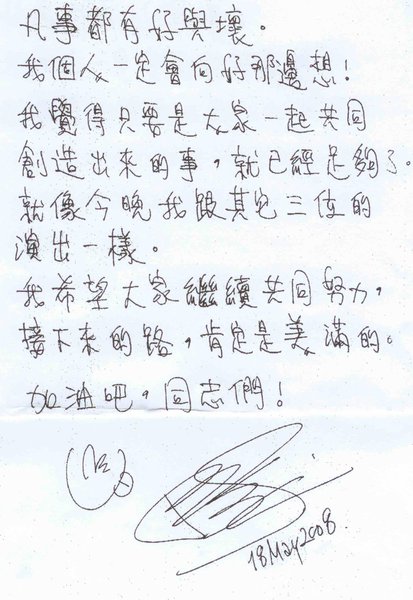 凡事都有好與壞。
我個人一定會向好那邊想!
我覺得只要是大家一起共同
創造出來的事，就已經足夠了。
就像今晚我跟其它三位的
演出一樣。
我希望大家繼續共同努力，
接下來的路，肯定是美滿的。
加油吧，同志們!
18 May 2008.